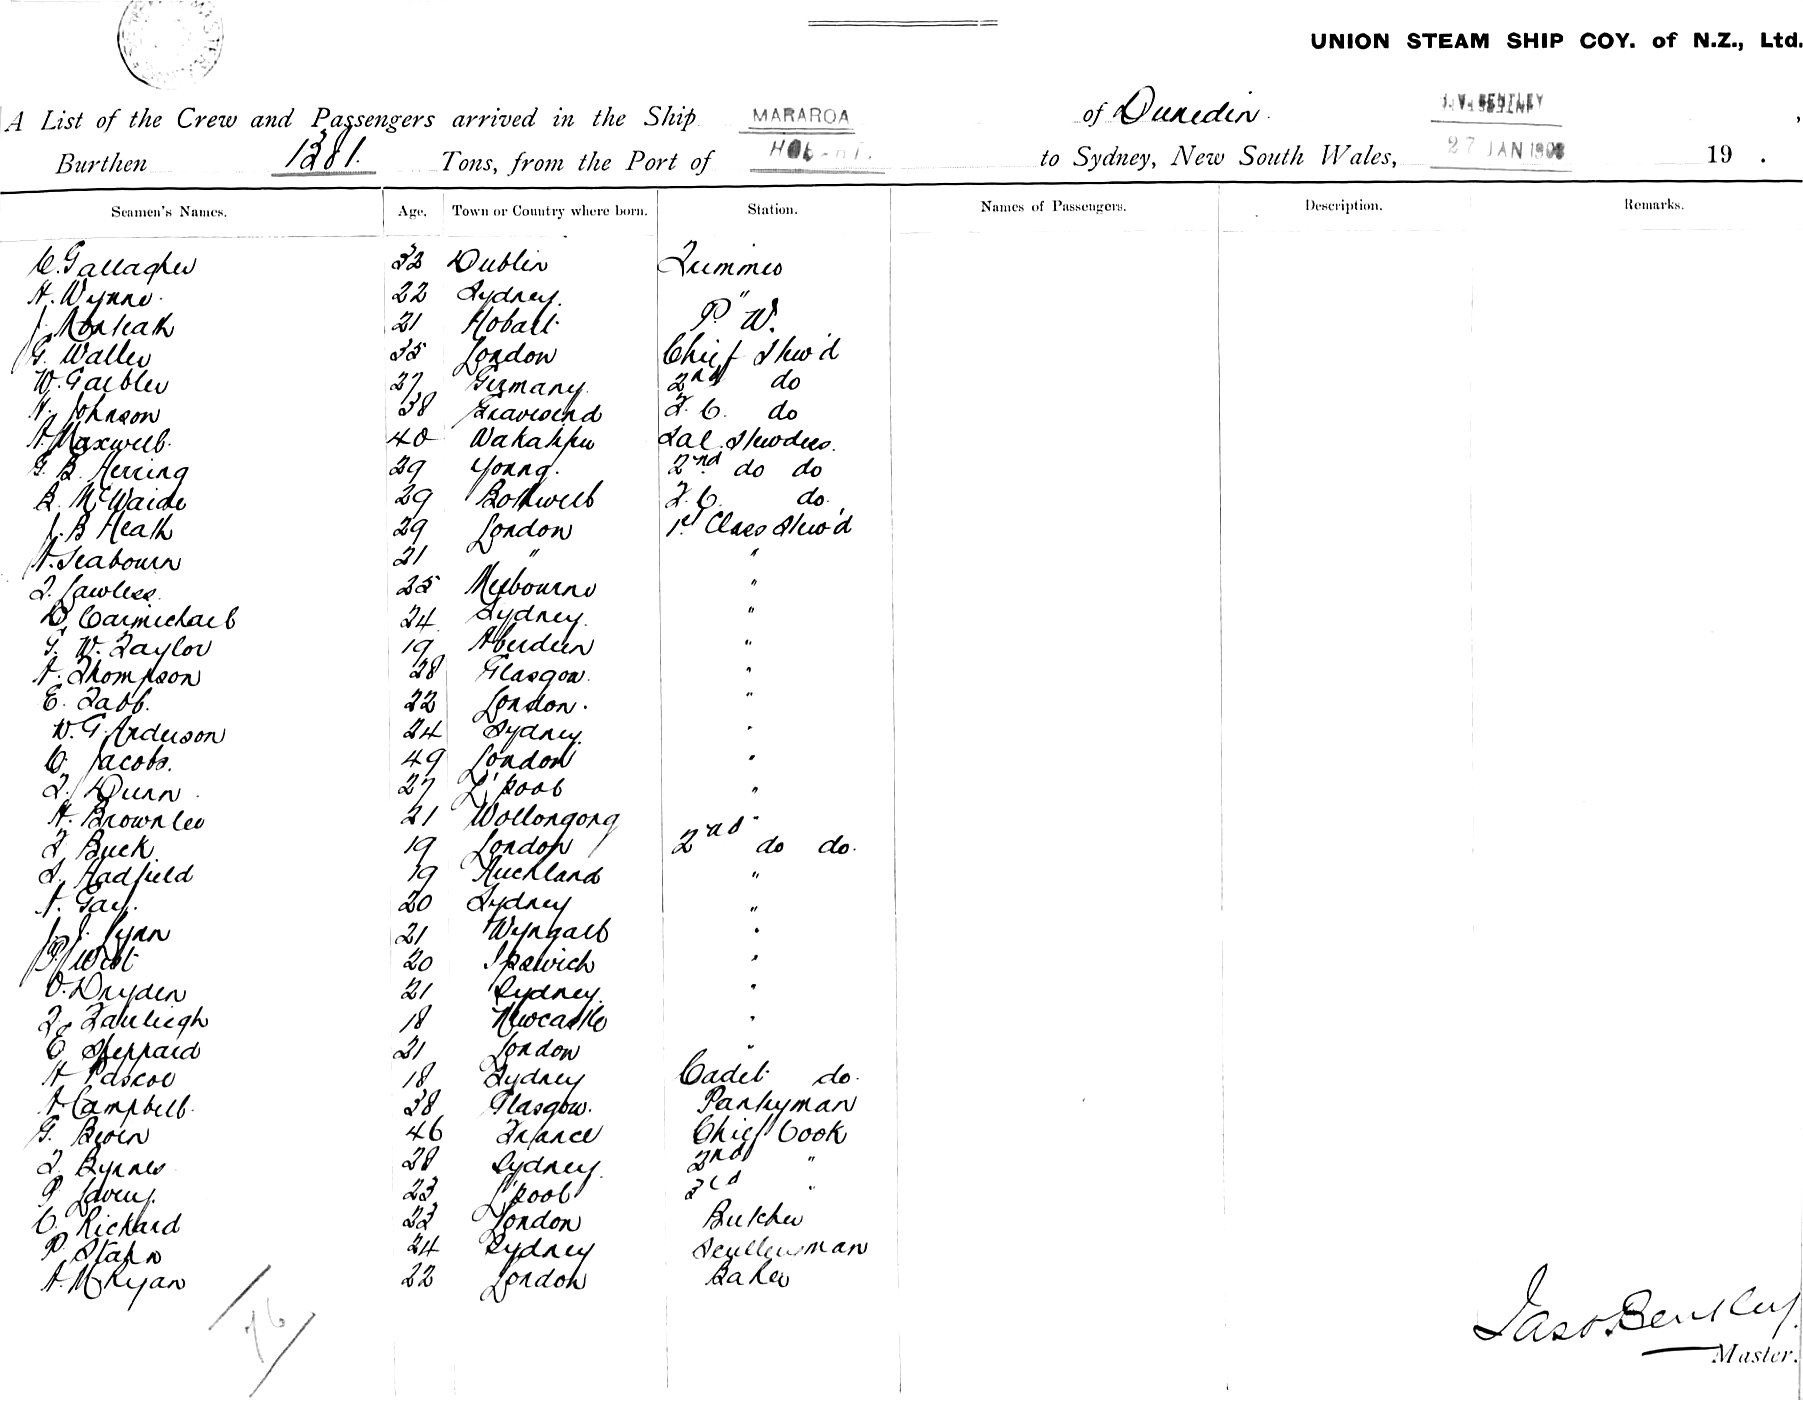 UNION STEAM SHIP COY. of N.Z., Ltd.
A List of the Crew and Passengers arrived in the Ship MARAROA of Dunedin. J. W. BENTLEY
Burthen 1381. Tons, from the Port of HOBART. to Sydney, New South Wales, 27 JAN 1908 19 .
Seamen's Names. Age. Town or Country where born. Station. Names of Passengers. Description. Remarks.
C. Gallagher 32 Dublin Trimmer
H. Wynne. 22 Sydney. "
J. Monteath 21 Hobart P. W.
G. Waller 35 London Chief Stew'd
W. Gaebler 27 Germany. 2nd do
H. Johnson 38 Gravesend F. C. do
A. Maxwell. 40 Sal. Stewdess.
G. B. Herring 29 Young. 2nd do do
B. McWaide 29 Bothwell F. C. do.
J. B Heath 29 London 1st Class Stew'd
A. Seabourn 21 " "
F. Lawless. 25 Melbourne "
D. Carmichael 24 Sydney. "
G. W. Taylor 19 Aberdeen "
A. Thompson 28 Glasgow. "
E. Tabb. 22 London. "
W. G. Anderson 24 Sydney. "
C. Jacobs. 49 London "
T. Dunn. 27 L'pool "
H. Brownlee 21 Wollongong "
F Buck. 19 London 2nd do do.
T. Hadfield 19 Auckland "
A. Gay. 20 Sydney "
J. J. Lynn 21 "
P. West 20 Ipswich "
O. Dryden 21 Sydney. "
18 Newcastle "
C Sheppard 21 London "
H Pascoe 18 Sydney Cadet do.
A Campbell. 38 Glasgow. Pantryman
G. 46 France Chief Cook
F. Byrnes 28 Sydney. 2nd "
P. Lavery. 23 L'pool 3rd "
C. Richard 22 London Butcher
P. Stahn 24 Sydney Scullerman
A. McRyan 22 London Baker
76
Jas W Bentley.
Master.